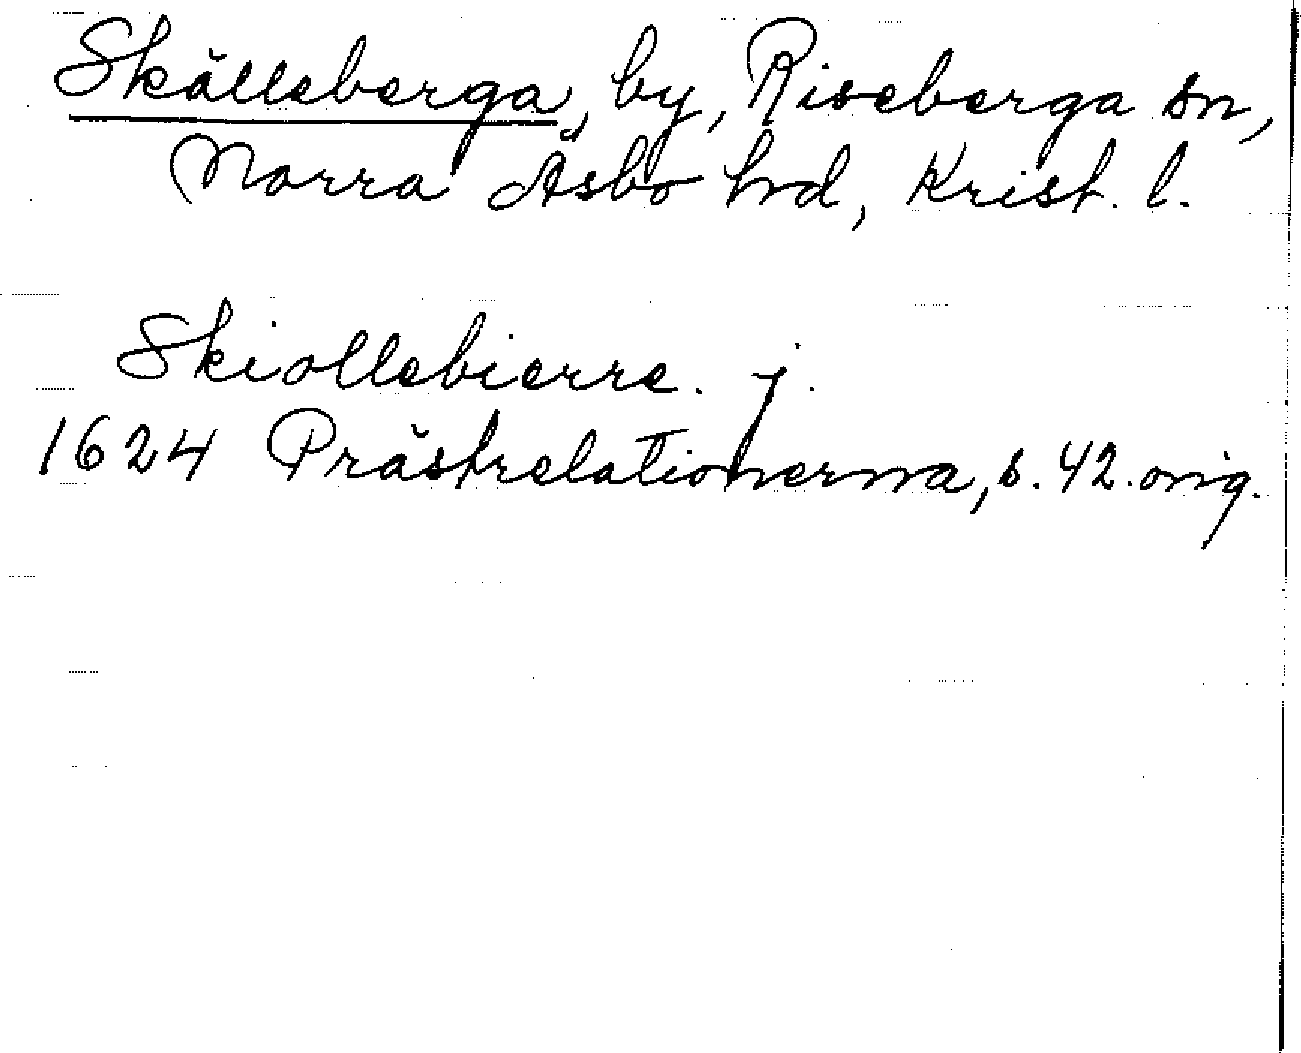 Skälleberga, by, Riseberga sn,
Norra Åsbo hrd, Krist. l.
Skiollebierre. j.
1624 Prästrelationerna, s. 42. orig.